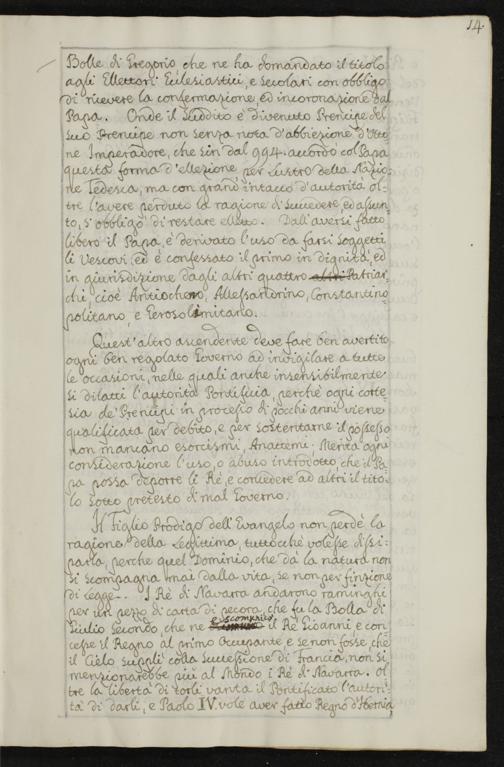 14.
Bolle di Gregorio che ne ha domandato il titolo
agli Ellettori Eclesiastici, e Secolari con obbligo
di ricevere la confermazione, ed incoronazione dal
Papa. Onde il Suddito è divenuto Prencipe del
suo Prencipe non senza nota d'abbiezione d'Otto:
ne Imperadore, che sin dal 994. accordò col Papa
questa forma d'ellezione per lustro della Nazio:
ne Tedesca, ma con grand'intacco d'autorità ol:
tre l'avere perduto la ragione di succedere, ed assun:
to, s'obbligò di restare eletto. Dall'aversi fatto
libero il Papa, è derivato l'uso da farsi soggetti
li Vescovi, ed è confessato il primo in dignità, ed
in giurisdizione dagli altri quattro altri Patriar:
chi, cioè Antiocheno, Allessandrino, Constantino
politano, e Gerosolimitano.
Quest'altro ascendente deve fare ben avertito
ogni ben regolato Governo ad invigilare a tutte
le occasioni, nelle quali anche insensibilmente
si dilatti l'autorità Pontificia, perchè ogni corte:
sia de' Prencipi in processo di pocchi anni viene
qualificata per debito, e per sostentarne il possesso
non mancano esorcismi, Anattemi. Merita ogni
considerazione l'uso, o abuso introdotto, che il Pa:
pa possa deporre li Rè, e concedere ad altri il tito:
lo sotto pretesto di mal Governo.
Il Figlio Prodigo dell'Evangelo non perdè la
ragione della Legittima, tuttocchè volesse dissi:
parla, perche quel Dominio, che dà la natura non
si scompagna mai dalla vita, se non per finzione
di Legge. I Rè di Navarra andarono raminghi
per un pezzo di carta di pecora, che fu la Bolla di
Giulio Secondo, che ne escomunicò il Rè Gioanni e con:
cesse il Regno al primo Occupante e se non fosse, che
il Cielo supplì colla Successione di Francia, non si
menzionarebbe più al Mondo i Rè di Navarra. Ol:
tre la libertà di torli vanta il Pontificato l'autori:
tà di darli, e Paolo IV. vole aver fatto Regno d'Ibernia